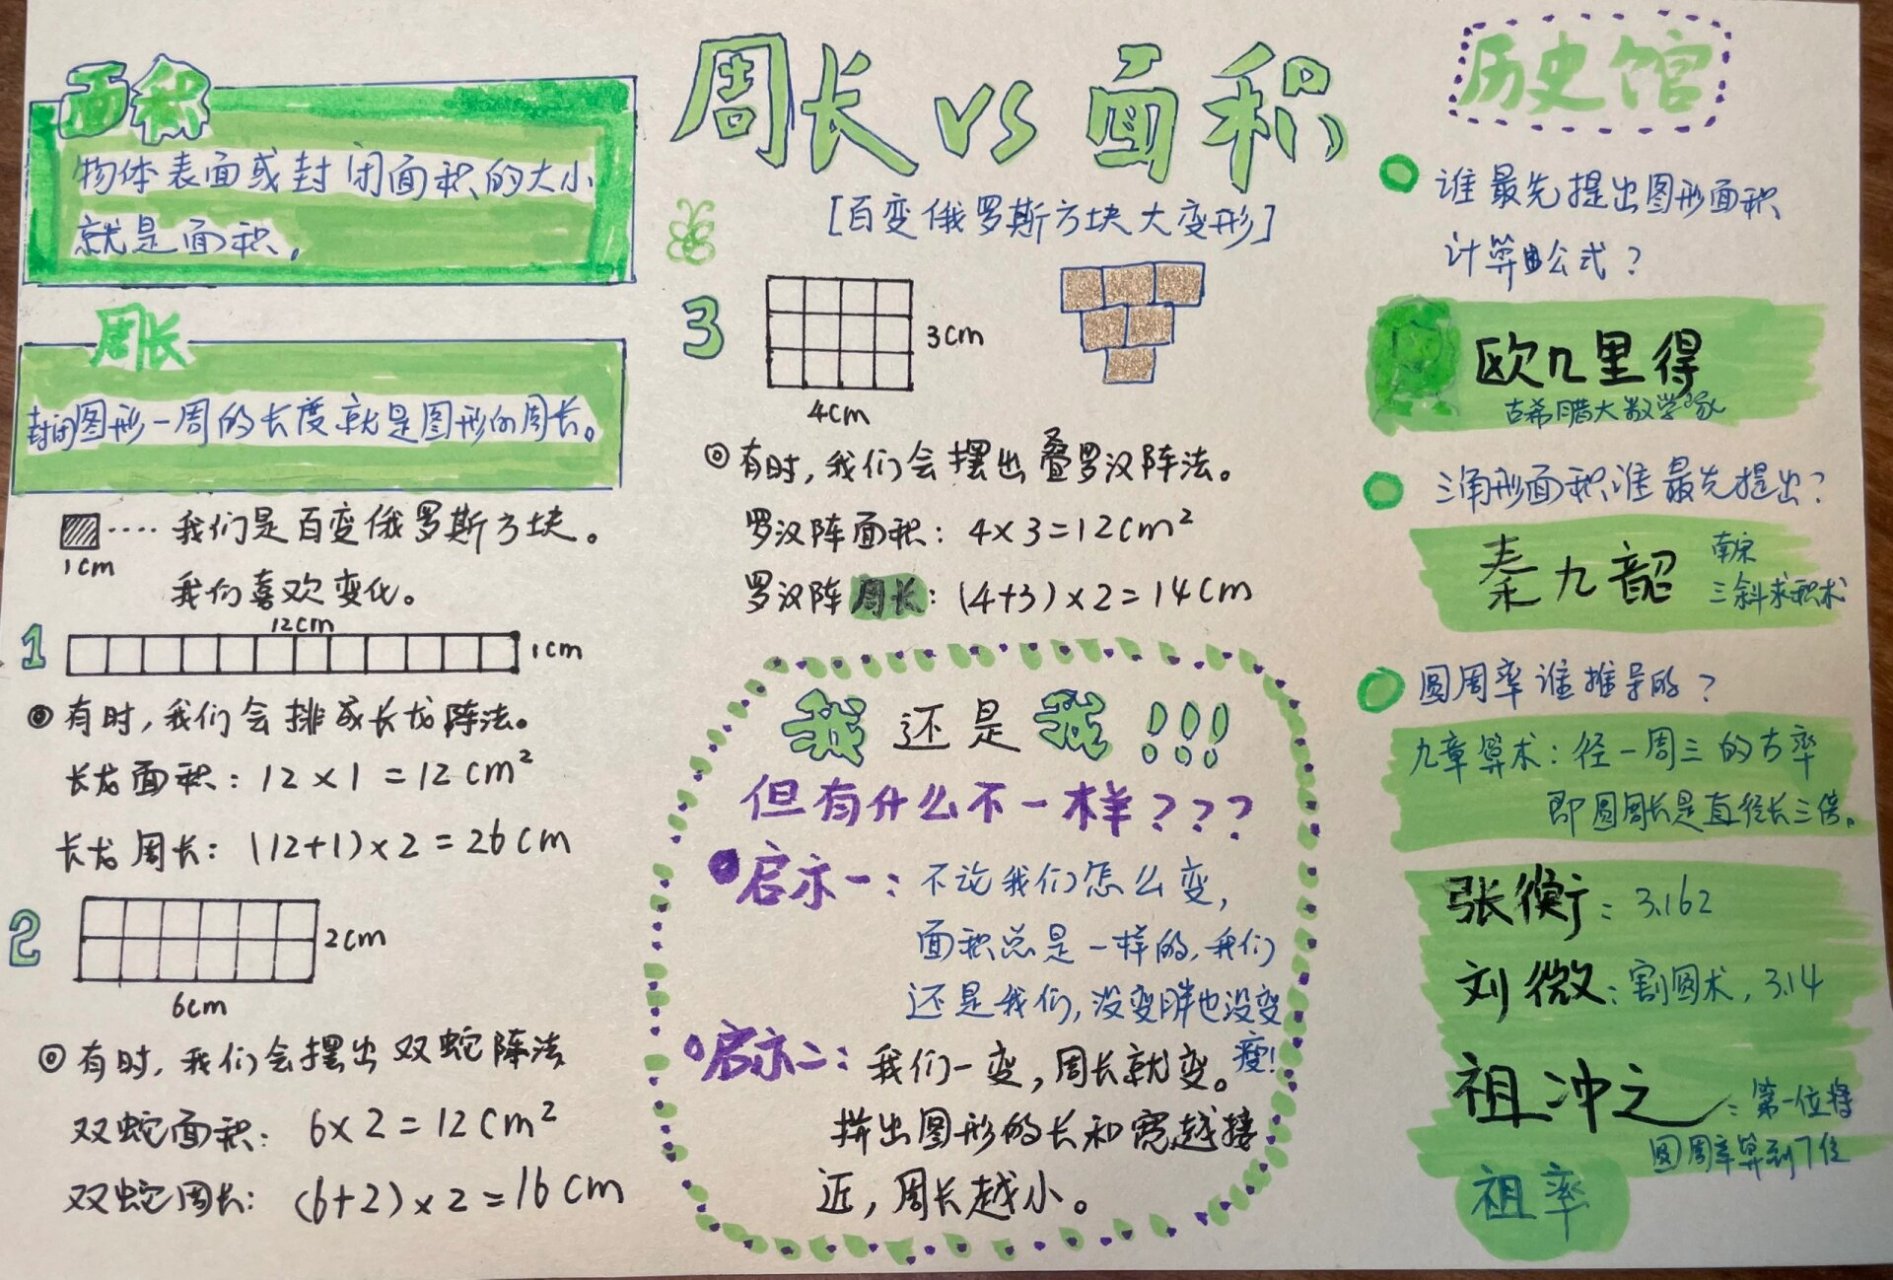 周长 VS 面积
[百变俄罗斯方块大变形]
面积
物体表面或封闭面积的大小
就是面积。
周长
封闭图形一周的长度就是图形的周长。
1cm
····我们是百变俄罗斯方块。
我们喜欢变化。
1
12cm
1cm
有时,我们会排成长龙阵法。
长龙面积:12×1=12cm²
长龙周长:(12+1)×2=26cm
2
2cm
6cm
有时,我们会摆出双蛇阵法
双蛇面积:6×2=12cm²
双蛇周长:(6+2)×2=16cm
3
3cm
4cm
有时,我们会摆出叠罗汉阵法。
罗汉阵面积:4×3=12cm²
罗汉阵周长:(4+3)×2=14cm
我还是我!!!
但有什么不一样???
启示一:不论我们怎么变,
面积总是一样的,我们
还是我们,没变胖也没变
瘦!
启示二:我们一变,周长就变。
拼出图形的长和宽越接
近,周长越小。
历史馆
谁最先提出图形面积
计算公式?
欧几里得
古希腊大数学家
三角形面积谁最先提出?
秦九韶
南宋
三斜求积术
圆周率谁推导的?
九章算术:径一周三的古率
即圆周长是直径长三倍。
张衡:3.162
刘微:割圆术,3.14
祖冲之:第一位将
圆周率算到7位
祖率